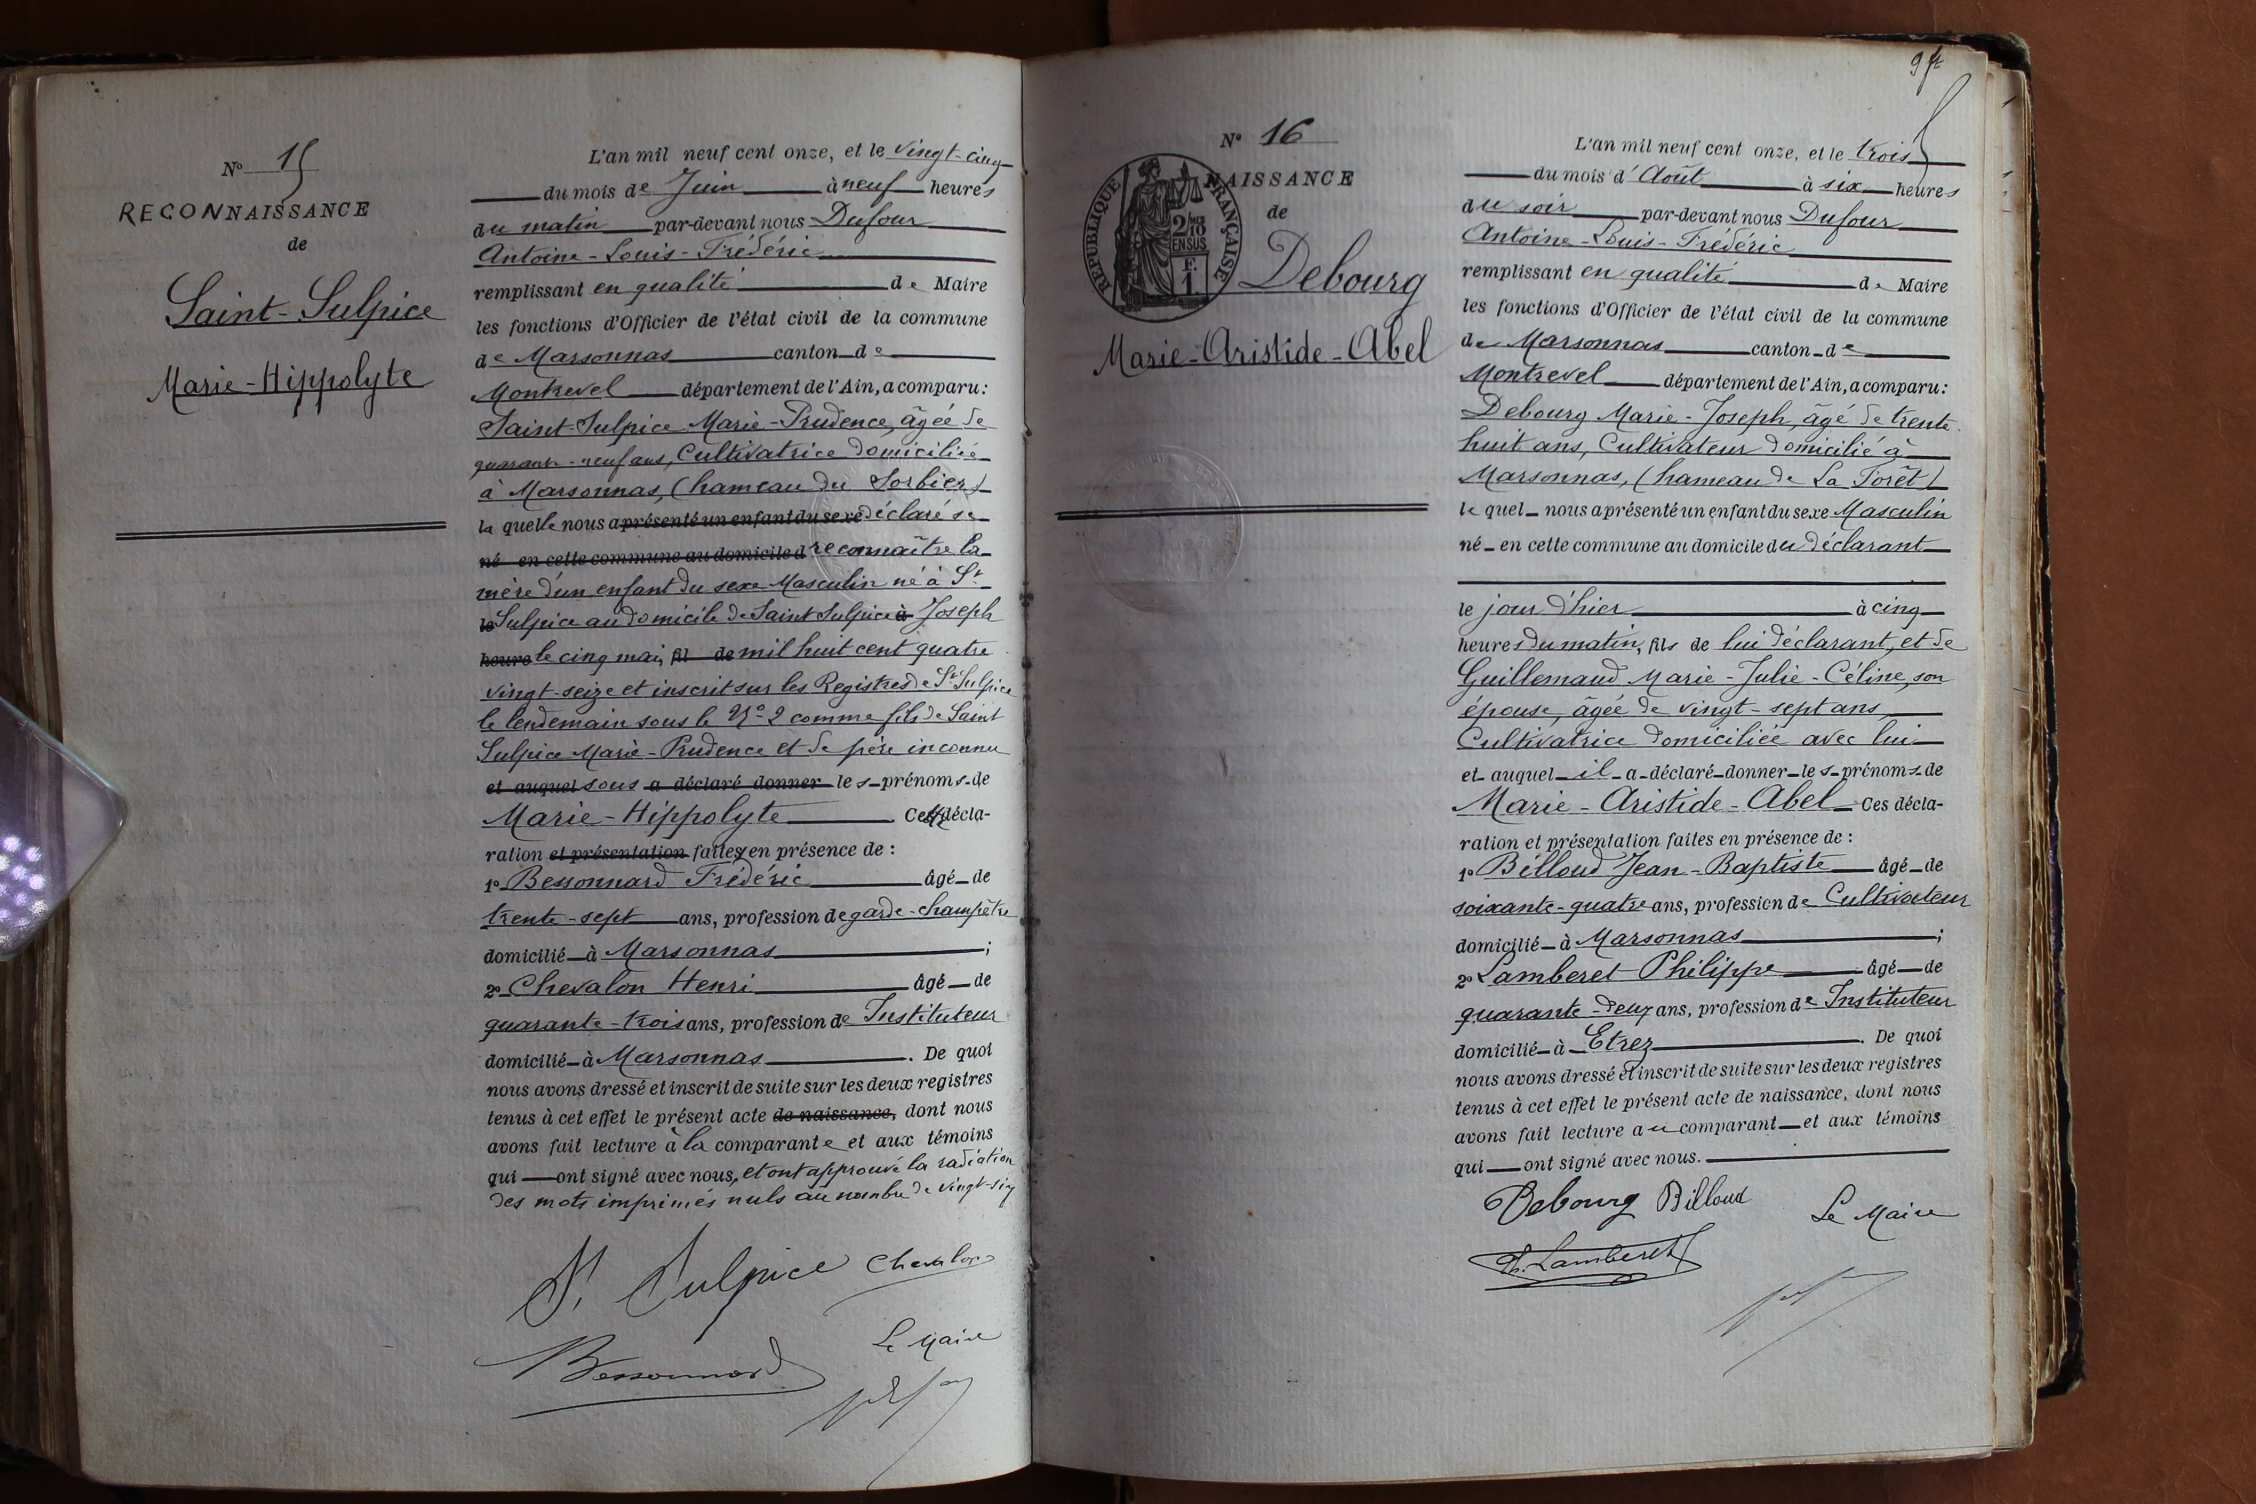 N° 15
RECONNAISSANCE
de
Saint-Sulpice
Marie-Hippolyte
L'an mil neuf cent onze, et le vingt-cinq
du mois de Juin à neuf heures
du matin par-devant nous Dufour
Antoine-Louis-Frédéric
remplissant en qualité de Maire
les fonctions d'Officier de l'état civil de la commune
de Marsonnas canton de
Montrevel département de l'Ain, a comparu:
Saint-Sulpice Marie-Prudence, âgée de
quarante-neuf ans, Cultivatrice domiciliée
à Marsonnas, (hameau du Sorbier)
la quelle nous a présenté un enfant du sexe déclaré se
né en cette commune au domicile d reconnaître la
mère d'un enfant du sexe Masculin né à St
le Sulpice au domicile de Saint Sulpice à Joseph
heure le cinq mai, fil de mil huit cent quatre
vingt-seize et inscrit sur les Registres de St Sulpice
le lendemain sous le N° 2 comme fils de Saint
Sulpice Marie-Prudence et de père inconnu
et auquel sous a déclaré donner les prénoms de
Marie-Hippolyte. Cette décla-
ration et présentation faites en présence de :
1° Bessonnard Frédéric âgé de
trente-sept ans, profession de garde-champêtre
domicilié à Marsonnas ;
2° Chevalon Henri âgé de
quarante-trois ans, profession de Instituteur
domicilié à Marsonnas. De quoi
nous avons dressé et inscrit de suite sur les deux registres
tenus à cet effet le présent acte de naissance, dont nous
avons fait lecture à la comparante et aux témoins
qui ont signé avec nous, et ont approuvé la radiation
des mots imprimés nuls au nombre de vingt-six
St Sulpice Chevalon
Le Maire
Bessonnard
N° 16
NAISSANCE
de
RÉPUBLIQUE FRANÇAISE
2/10
EN SUS
F.
1.
Debourg
Marie-Aristide-Abel
L'an mil neuf cent onze, et le trois
du mois d'Août à six heures
du soir par-devant nous Dufour
Antoine-Louis-Frédéric
remplissant en qualité de Maire
les fonctions d'Officier de l'état civil de la commune
de Marsonnas canton de
Montrevel département de l'Ain, a comparu:
Debourg Marie-Joseph, âgé de trente
huit ans, Cultivateur domicilié à
Marsonnas, (hameau de La Forêt)
le quel nous a présenté un enfant du sexe Masculin
né en cette commune au domicile du déclarant
le jour d'hier à cinq
heures du matin, fils de lui déclarant, et de
Guillemaud Marie-Julie-Céline, son
épouse, âgée de vingt-sept ans
Cultivatrice domiciliée avec lui
et auquel il a déclaré donner les prénoms de
Marie-Aristide-Abel Ces décla-
ration et présentation faites en présence de :
1° Billoud Jean-Baptiste âgé de
soixante-quatre ans, profession de Cultivateur
domicilié à Marsonnas ;
2° Lamberet Philippe âgé de
quarante-deux ans, profession de Instituteur
domicilié à Etrez. De quoi
nous avons dressé et inscrit de suite sur les deux registres
tenus à cet effet le présent acte de naissance, dont nous
avons fait lecture au comparant et aux témoins
qui ont signé avec nous.
Debourg Billoud
Le Maire
Ph. Lamberet